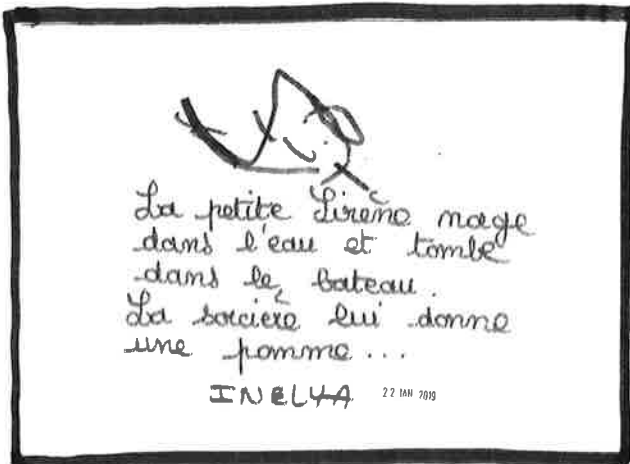 La petite Sirène nage
dans l'eau et tombe
dans le bateau.
La sorcière lui donne
une pomme...
INELYA 22 JAN 2019